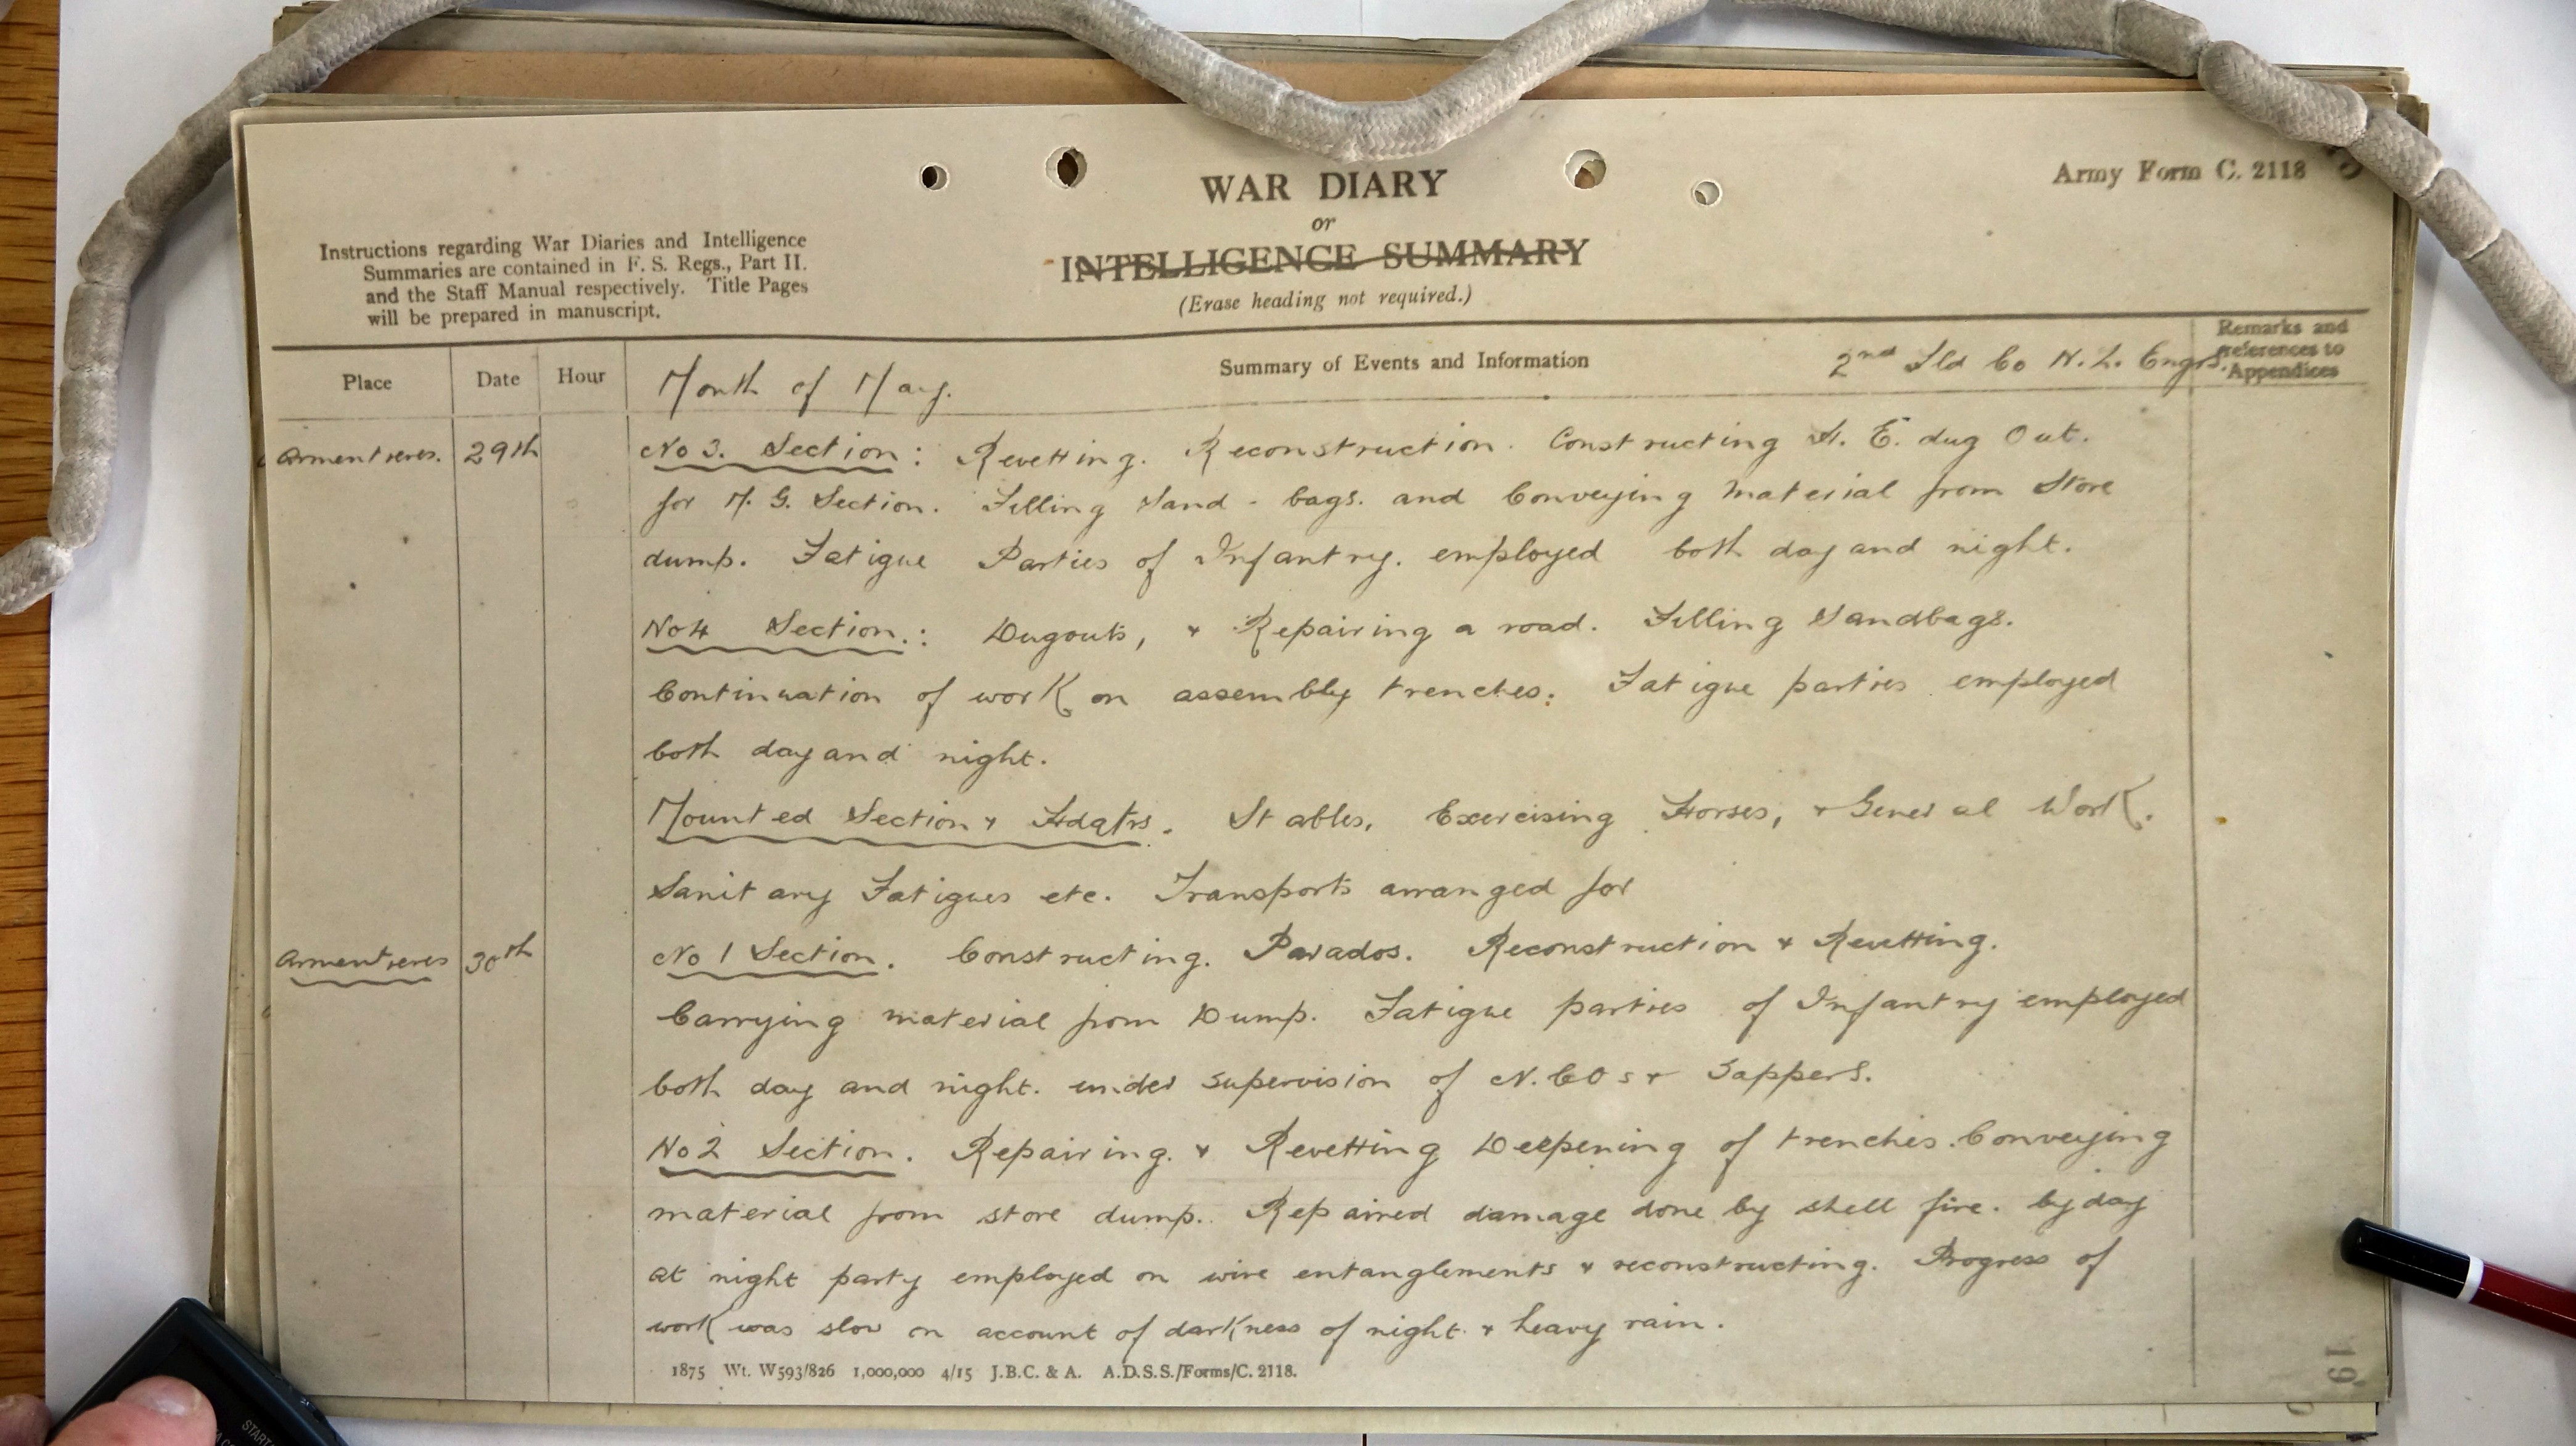 WAR DIARY
or
INTELLIGENCE SUMMARY
(Erase heading not required.)
Army Form C. 2118
Instructions regarding War Diaries and Intelligence
Summaries are contained in F. S. Regs., Part II.
and the Staff Manual respectively. Title Pages
will be prepared in manuscript.
Place Date Hour Summary of Events and Information
Remarks and
references to
Appendices
Month of May. 2nd Fld Co N.Z. Engrs.
Armentieres. 29th No 3. Section: Revetting. Reconstruction. Constructing H. E. dug Out.
for M. G. Section. Filling Sand-bags. and Conveying Material from Store
dump. Fatigue Parties of Infantry. employed both day and night.
No 4 Section.: Dugouts, & Repairing a road. Filling Sandbags.
Continuation of work on assembly trenches. Fatigue parties employed
both day and night.
Mounted Section & Hdqtrs. Stables, Exercising Horses, & General Work.
Sanitary Fatigues etc. Transports arranged for
Armentieres 30th No 1 Section. Constructing. Parados. Reconstruction & Revetting.
Carrying material from Dump. Fatigue parties of Infantry employed
both day and night. under supervision of N.COs & Sappers.
No 2 Section. Repairing. & Revetting Deepening of trenches. Conveying
material from store dump. Repaired damage done by shell fire. by day
at night party employed on wire entanglements & reconstructing. Progress of
work was slow on account of darkness of night. & heavy rain.
1875 Wt. W593/826 1,000,000 4/15 J.B.C. & A. A.D.S.S./Forms/C. 2118.
19
START